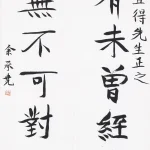 得先生正之
有未曾經
無不可對
余承堯